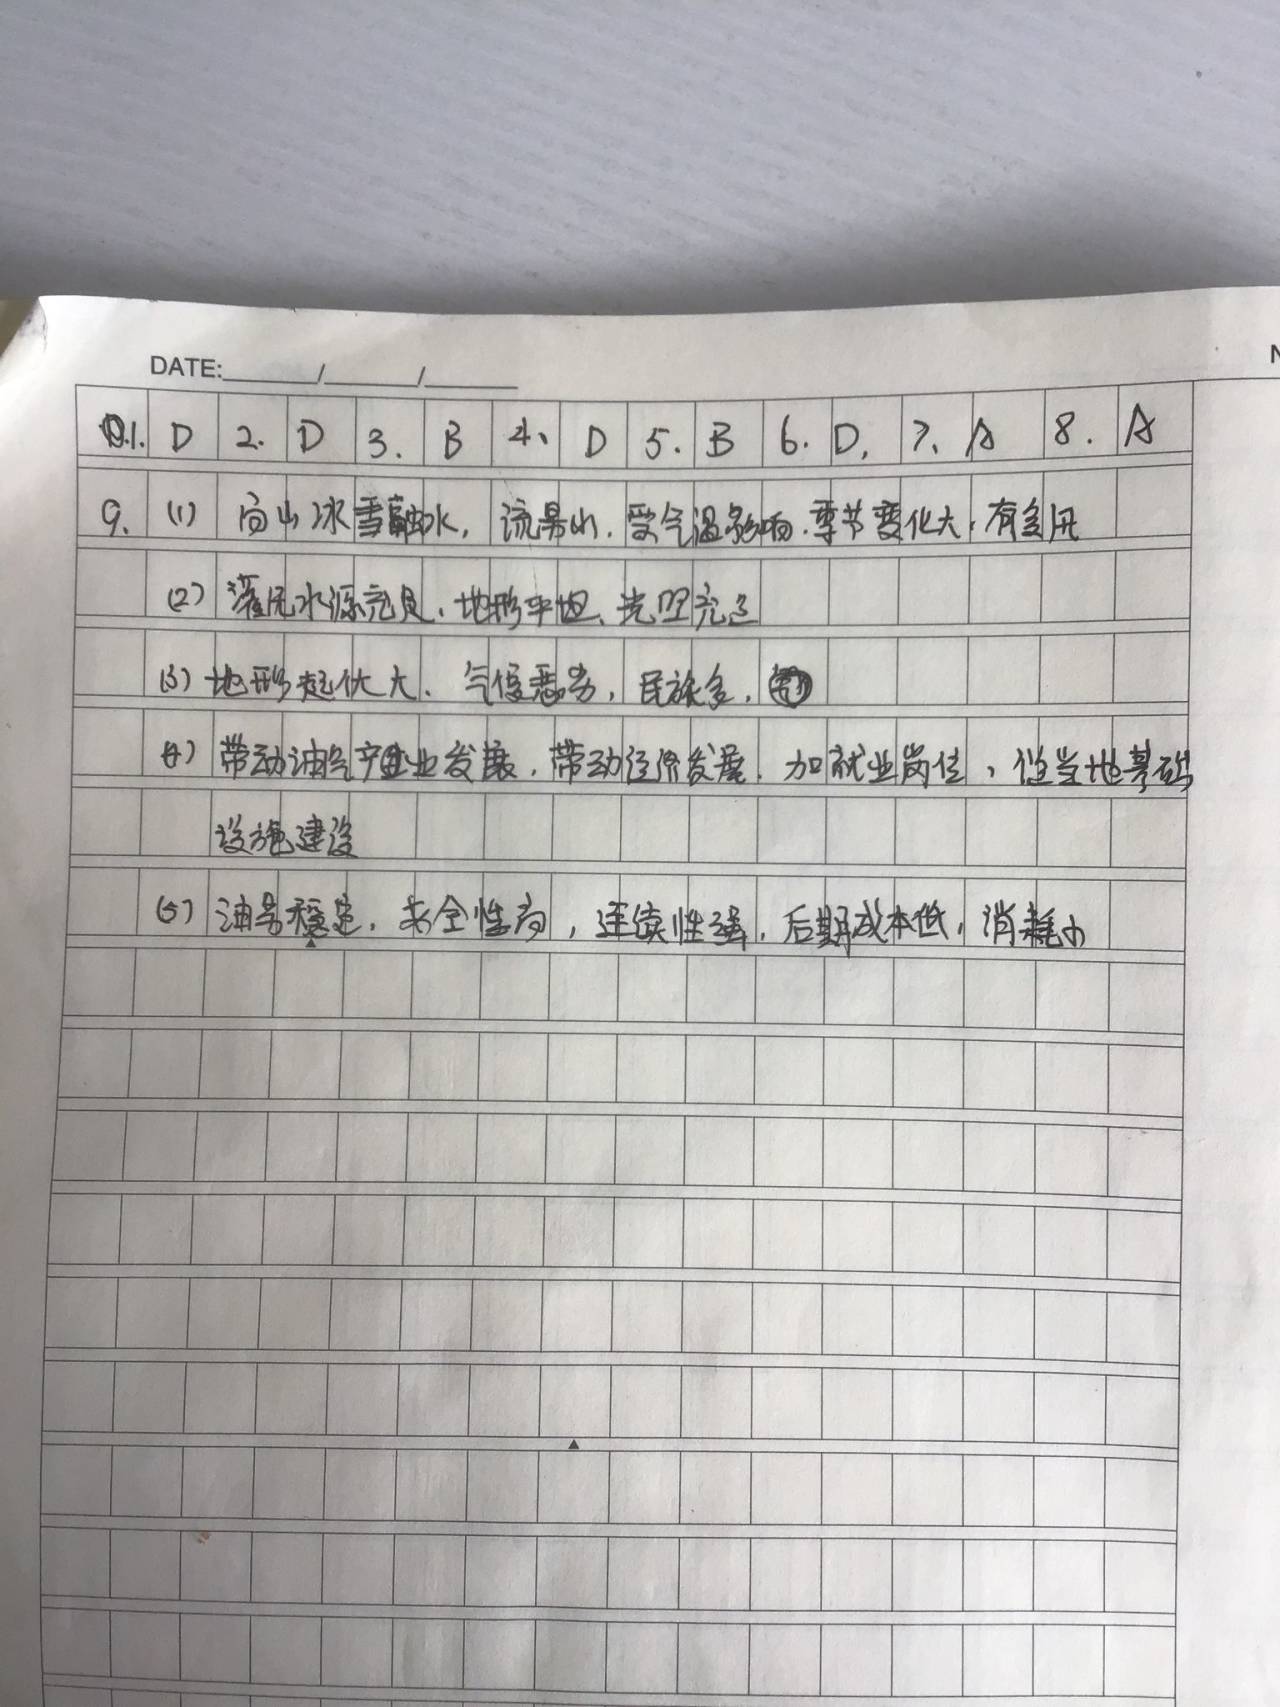 DATE: / /
1. D 2. D 3. B 4、D 5. B 6. D, 7、A 8. A
9. (1) 高山冰雪融水, 流量小, 受气温影响, 季节变化大, 有
(2) 灌溉水源充足、地形平坦、光照充足
(3) 地形起伏大、气候恶劣, 民族多,
(4) 带动油气产业发展, 带动经济发展, 加就业岗位, 促当地基础
设施建设
(5) 油量稳定, 安全性高, 连续性强, 后期成本低, 消耗小